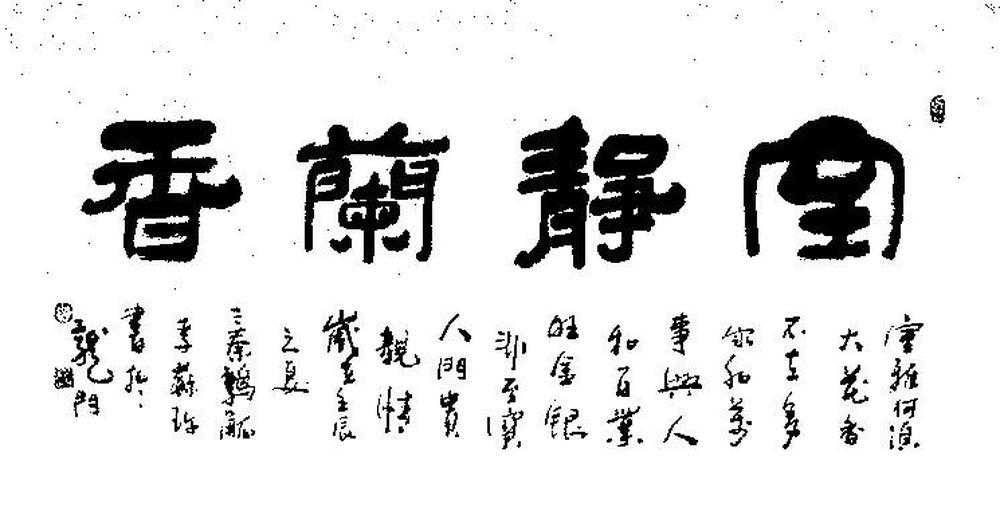 室靜蘭香
室雅何須
大花香
不在多
家和萬
事興人
和百業
旺金銀
非至寶
人間貴
親情
歲在壬辰
之夏
三秦鶉觚
李蘇
書於
龍門